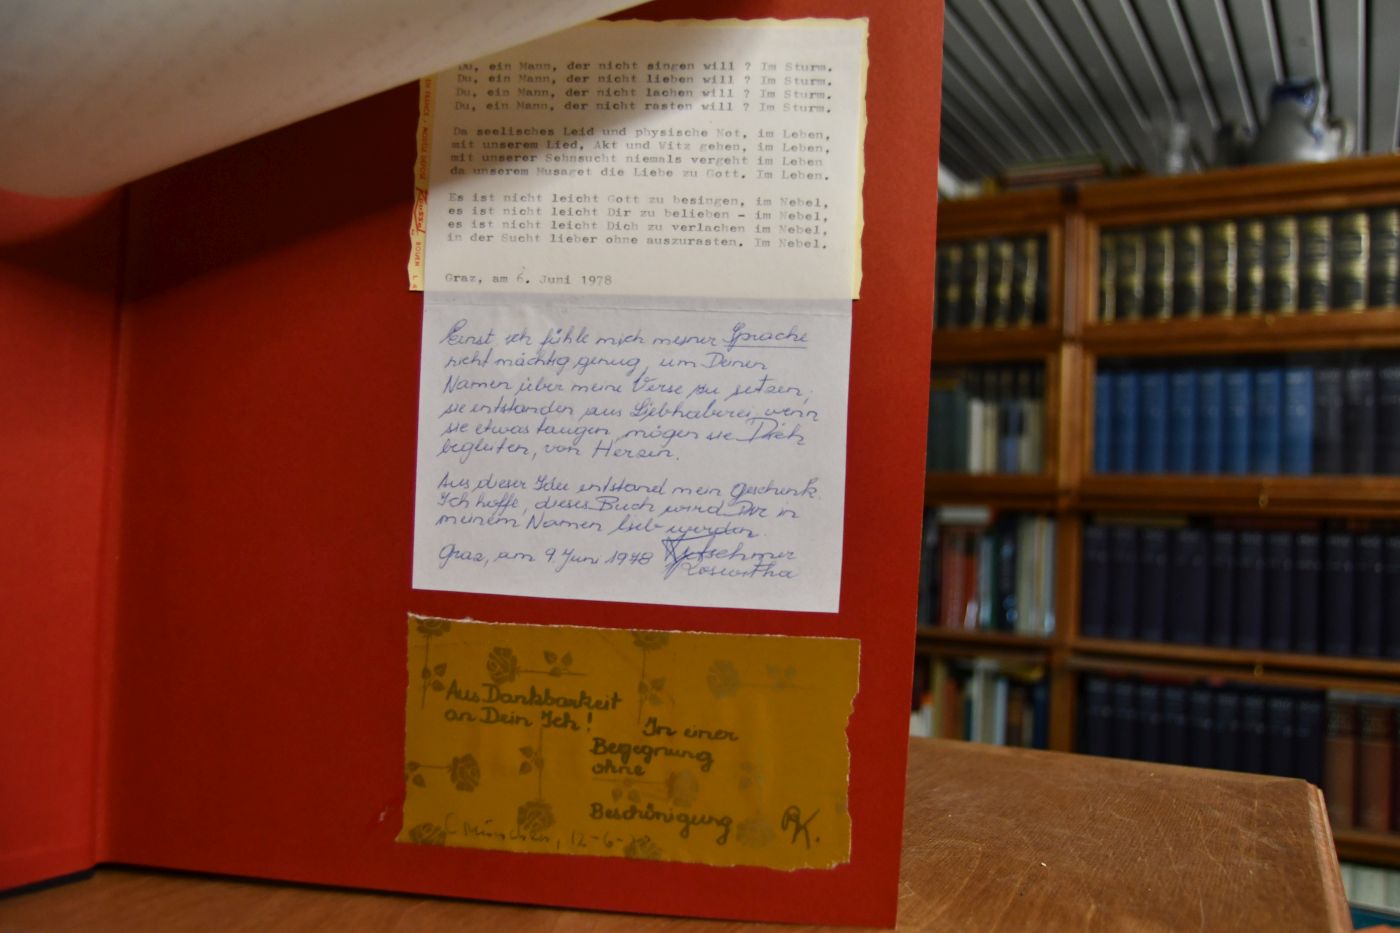 Du, ein Mann, der nicht singen will ? Im Sturm.
Du, ein Mann, der nicht lieben will ? Im Sturm.
Du, ein Mann, der nicht lachen will ? Im Sturm.
Du, ein Mann, der nicht rasten will ? Im Sturm.
Da seelisches Leid und physische Not, im Leben,
mit unserem Lied, Akt und Witz geben, im Leben,
mit unserer Sehnsucht niemals vergeht im Leben
da unserem Musaget die Liebe zu Gott. Im Leben.
Es ist nicht leicht Gott zu besingen, im Nebel,
es ist nicht leicht Dir zu belieben - im Nebel,
es ist nicht leicht Dich zu verlachen im Nebel,
in der Sucht lieber ohne auszurasten. Im Nebel.
Graz, am 6. Juni 1978
Ernst, ich fühle mich meiner Sprache
nicht mächtig genug, um Deinen
Namen über meine Verse zu setzen;
sie entstanden aus Liebhaberei, wenn
sie etwas taugen, mögen sie Dich
begleiten, von Herzen.
Aus dieser Idee entstand mein Geschenk.
Ich hoffe, dieses Buch wird Dir in
meinem Namen lieb werden.
Graz, am 9. Juni 1978 Kretschmer
Roswitha
Aus Dankbarkeit
an Dein Ich!
In einer
Begegnung
ohne
Beschönigung
RK.
München, 12-6-